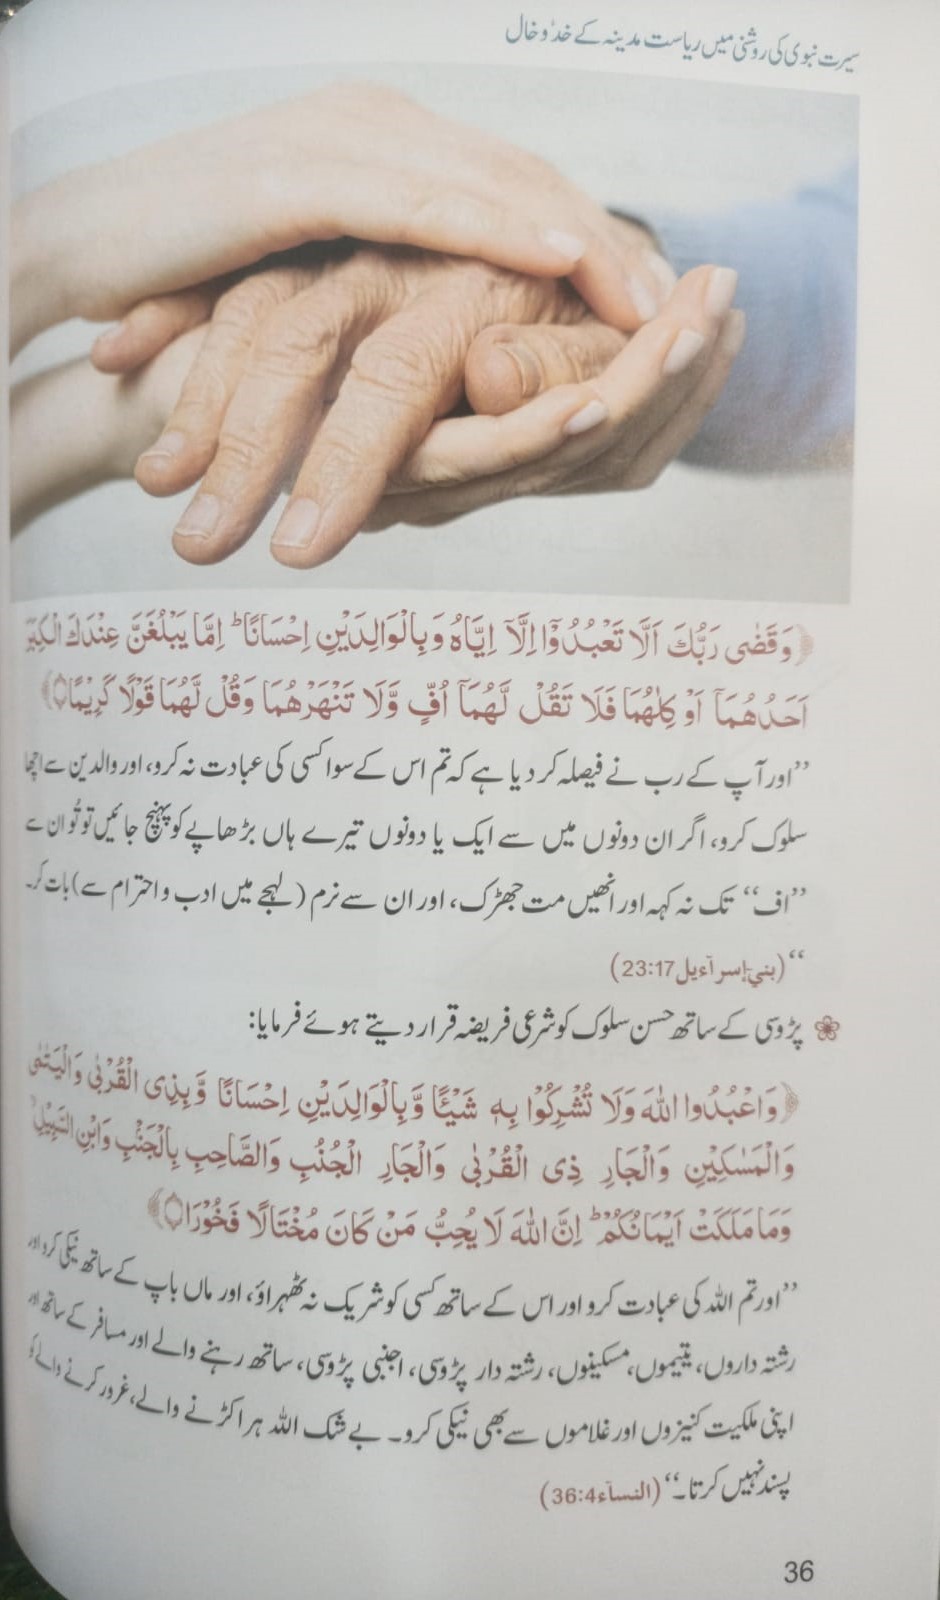 سیرت نبوی کی روشنی میں ریاست مدینہ کے خدّ و خال
﴿وَقَضٰى رَبُّكَ اَلَّا تَعْبُدُوْٓا اِلَّآ اِيَّاهُ وَبِالْوَالِدَيْنِ اِحْسَانًا ؕ اِمَّا يَبْلُغَنَّ عِنْدَكَ الْكِبَرَ
اَحَدُهُمَآ اَوْ كِلٰهُمَا فَلَا تَقُلْ لَّهُمَآ اُفٍّ وَّلَا تَنْهَرْهُمَا وَقُلْ لَّهُمَا قَوْلًا كَرِيْمًا﴾
’’اور آپ کے رب نے فیصلہ کر دیا ہے کہ تم اس کے سوا کسی کی عبادت نہ کرو، اور والدین سے اچھا
سلوک کرو، اگر ان دونوں میں سے ایک یا دونوں تیرے ہاں بڑھاپے کو پہنچ جائیں تو تُو ان سے
’’اف‘‘ تک نہ کہہ اور انھیں مت جھڑک، اور ان سے نرم (لہجے میں ادب و احترام سے) بات کر۔
‘‘ (بنيٓ إسرآءيل 23:17)
❀ پڑوسی کے ساتھ حسن سلوک کو شرعی فریضہ قرار دیتے ہوئے فرمایا:
﴿وَاعْبُدُوا اللّٰهَ وَلَا تُشْرِكُوْا بِهٖ شَيْـًٔا وَّبِالْوَالِدَيْنِ اِحْسَانًا وَّبِذِى الْقُرْبٰى وَالْيَتٰمٰى
وَالْمَسٰكِيْنِ وَالْجَارِ ذِى الْقُرْبٰى وَالْجَارِ الْجُنُبِ وَالصَّاحِبِ بِالْجَنْۢبِ وَابْنِ السَّبِيْلِ
وَمَا مَلَكَتْ اَيْمَانُكُمْ ؕ اِنَّ اللّٰهَ لَا يُحِبُّ مَنْ كَانَ مُخْتَالًا فَخُوْرًا﴾
’’اور تم اللہ کی عبادت کرو اور اس کے ساتھ کسی کو شریک نہ ٹھہراؤ، اور ماں باپ کے ساتھ نیکی کرو اور
رشتہ داروں، یتیموں، مسکینوں، رشتہ دار پڑوسی، اجنبی پڑوسی، ساتھ رہنے والے اور مسافر کے ساتھ اور
اپنی ملکیت کنیزوں اور غلاموں سے بھی نیکی کرو۔ بے شک اللہ ہر اکڑنے والے، غرور کرنے والے کو
پسند نہیں کرتا۔‘‘ (النسآء 36:4)
36